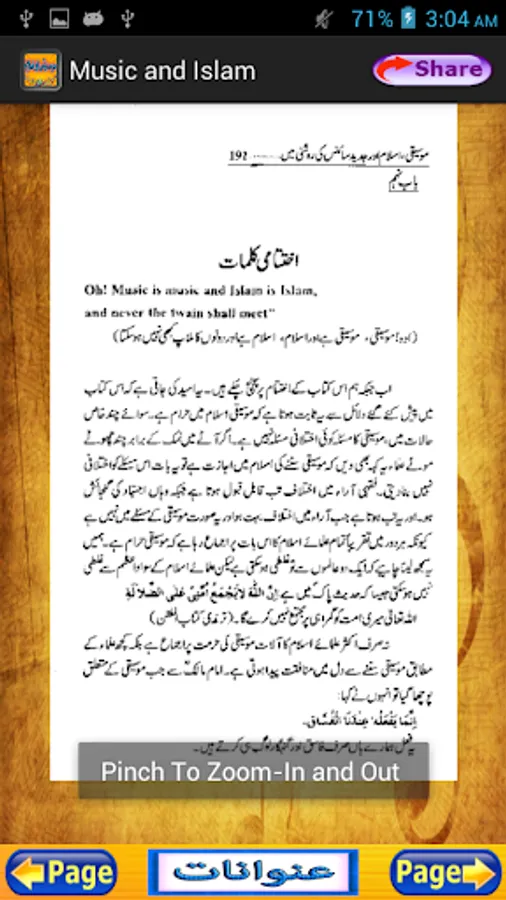 71% 3:04 AM
Music and Islam
Share
موسیقی، اسلام اور جدید سائنس کی روشنی میں ........ 192
باب نہم
اختتامی کلمات
Oh! Music is music and Islam is Islam,
and never the twain shall meet"
(اوہ! موسیقی، موسیقی ہے اور اسلام، اسلام ہے اور دونوں کا ملاپ کبھی نہیں ہو سکتا)
اب جبکہ ہم اس کتاب کے اختتام پر پہنچ چکے ہیں۔ یہ امید کی جاتی ہے کہ اس کتاب
میں پیش کئے گئے دلائل سے یہ ثابت ہوتا ہے کہ موسیقی اسلام میں حرام ہے۔ سوائے چند خاص
حالات میں، موسیقی کا مسئلہ کوئی اختلافی مسئلہ نہیں ہے۔ اگر آٹے میں نمک کے برابر چند چھوٹے
موٹے علماء یہ کہہ بھی دیں کہ موسیقی سننے کی اسلام میں اجازت ہے تو یہ بات اس مسئلے کو اختلافی
نہیں بنا دیتی۔ فقہی آراء میں اختلاف تب قابل قبول ہوتا ہے جبکہ وہاں اجتہاد کی گنجائش
ہو۔ اور یہ تب ہوتا ہے جب آراء میں اختلاف بہت ہو اور یہ صورت موسیقی کے مسئلے میں نہیں ہے
کیونکہ ہر دور میں تقریباً تمام علمائے اسلام کا اس بات پر اجماع رہا ہے کہ موسیقی حرام ہے۔ ہمیں
یہ سمجھ لینا چاہیے کہ ایک دو عالموں سے تو غلطی ہو سکتی ہے لیکن علمائے اسلام کے سواد اعظم سے غلطی
نہیں ہو سکتی جیسا کہ حدیث پاک میں ہے اِنَّ اللّٰهَ لَا يَجْمَعُ اُمَّتِیْ عَلَى الضَّلَالَةِ
اللہ تعالیٰ میری امت کو گمراہی پر مجتمع نہیں کرے گا۔ (ترمذی کتاب الفتن)
نہ صرف اکثر علمائے اسلام کا آلات موسیقی کی حرمت پر اجماع ہے بلکہ کچھ علماء کے
مطابق موسیقی سننے سے دل میں منافقت پیدا ہوتی ہے۔ امام مالکؒ سے جب موسیقی کے متعلق
پوچھا گیا تو انہوں نے کہا:
اِنَّمَا يَفْعَلُهٗ عِنْدَنَا الْفُسَّاقُ۔
یہ فعل ہمارے ہاں صرف فاسق اور گنہگار لوگ ہی کرتے ہیں۔
Pinch To Zoom-In and Out
Page
عنوانات
Page